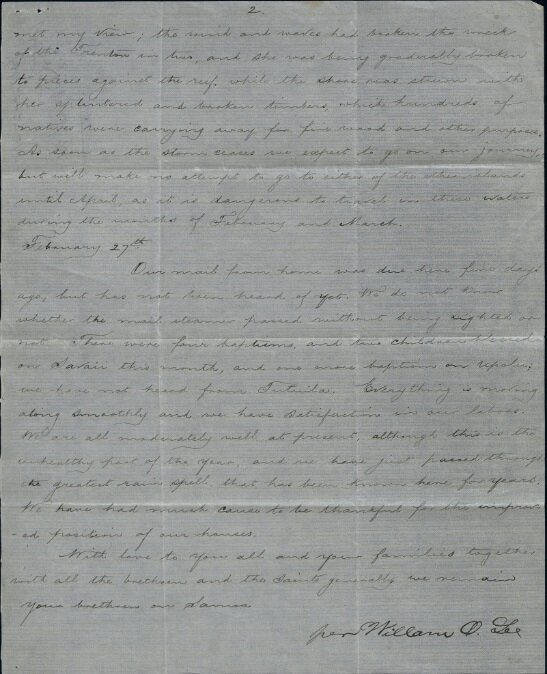 2.
met my view; the wind and waves had broken the wreck
of the Trenton in two, and she was being gradually broken
to pieces against the reef, while the shore was strewn with
her splintered and broken timbers, which hundreds of
natives were carrying away for fire wood and other purposes.
As soon as the storm ceases we expect to go on our journey,
but will make no attempt to go to either of the other islands
until April, as it is dangerous to travel in these waters
during the months of February and March.
February 27th
Our mail from home was due here five days
ago, but has not been heard of yet. We do not know
whether the mail steamer passed without being sighted or
not. There were four baptisms, and two children blessed
on Savaii this month, and one more baptism on Upolu;
we have not heard from Tutuila. Everything is moving
along smoothly and we have satisfaction in our labors.
We are all moderately well at present, although this is the
unhealthy part of the year, and we have just passed through
the greatest rain spell, that has been known here for years.
We have had much cause to be thankful for the improv-
-ed position of our houses.
With love to you all and your families together
with all the brethren and the Saints generally, we remain
your brethren on Samoa
per William O. Lee